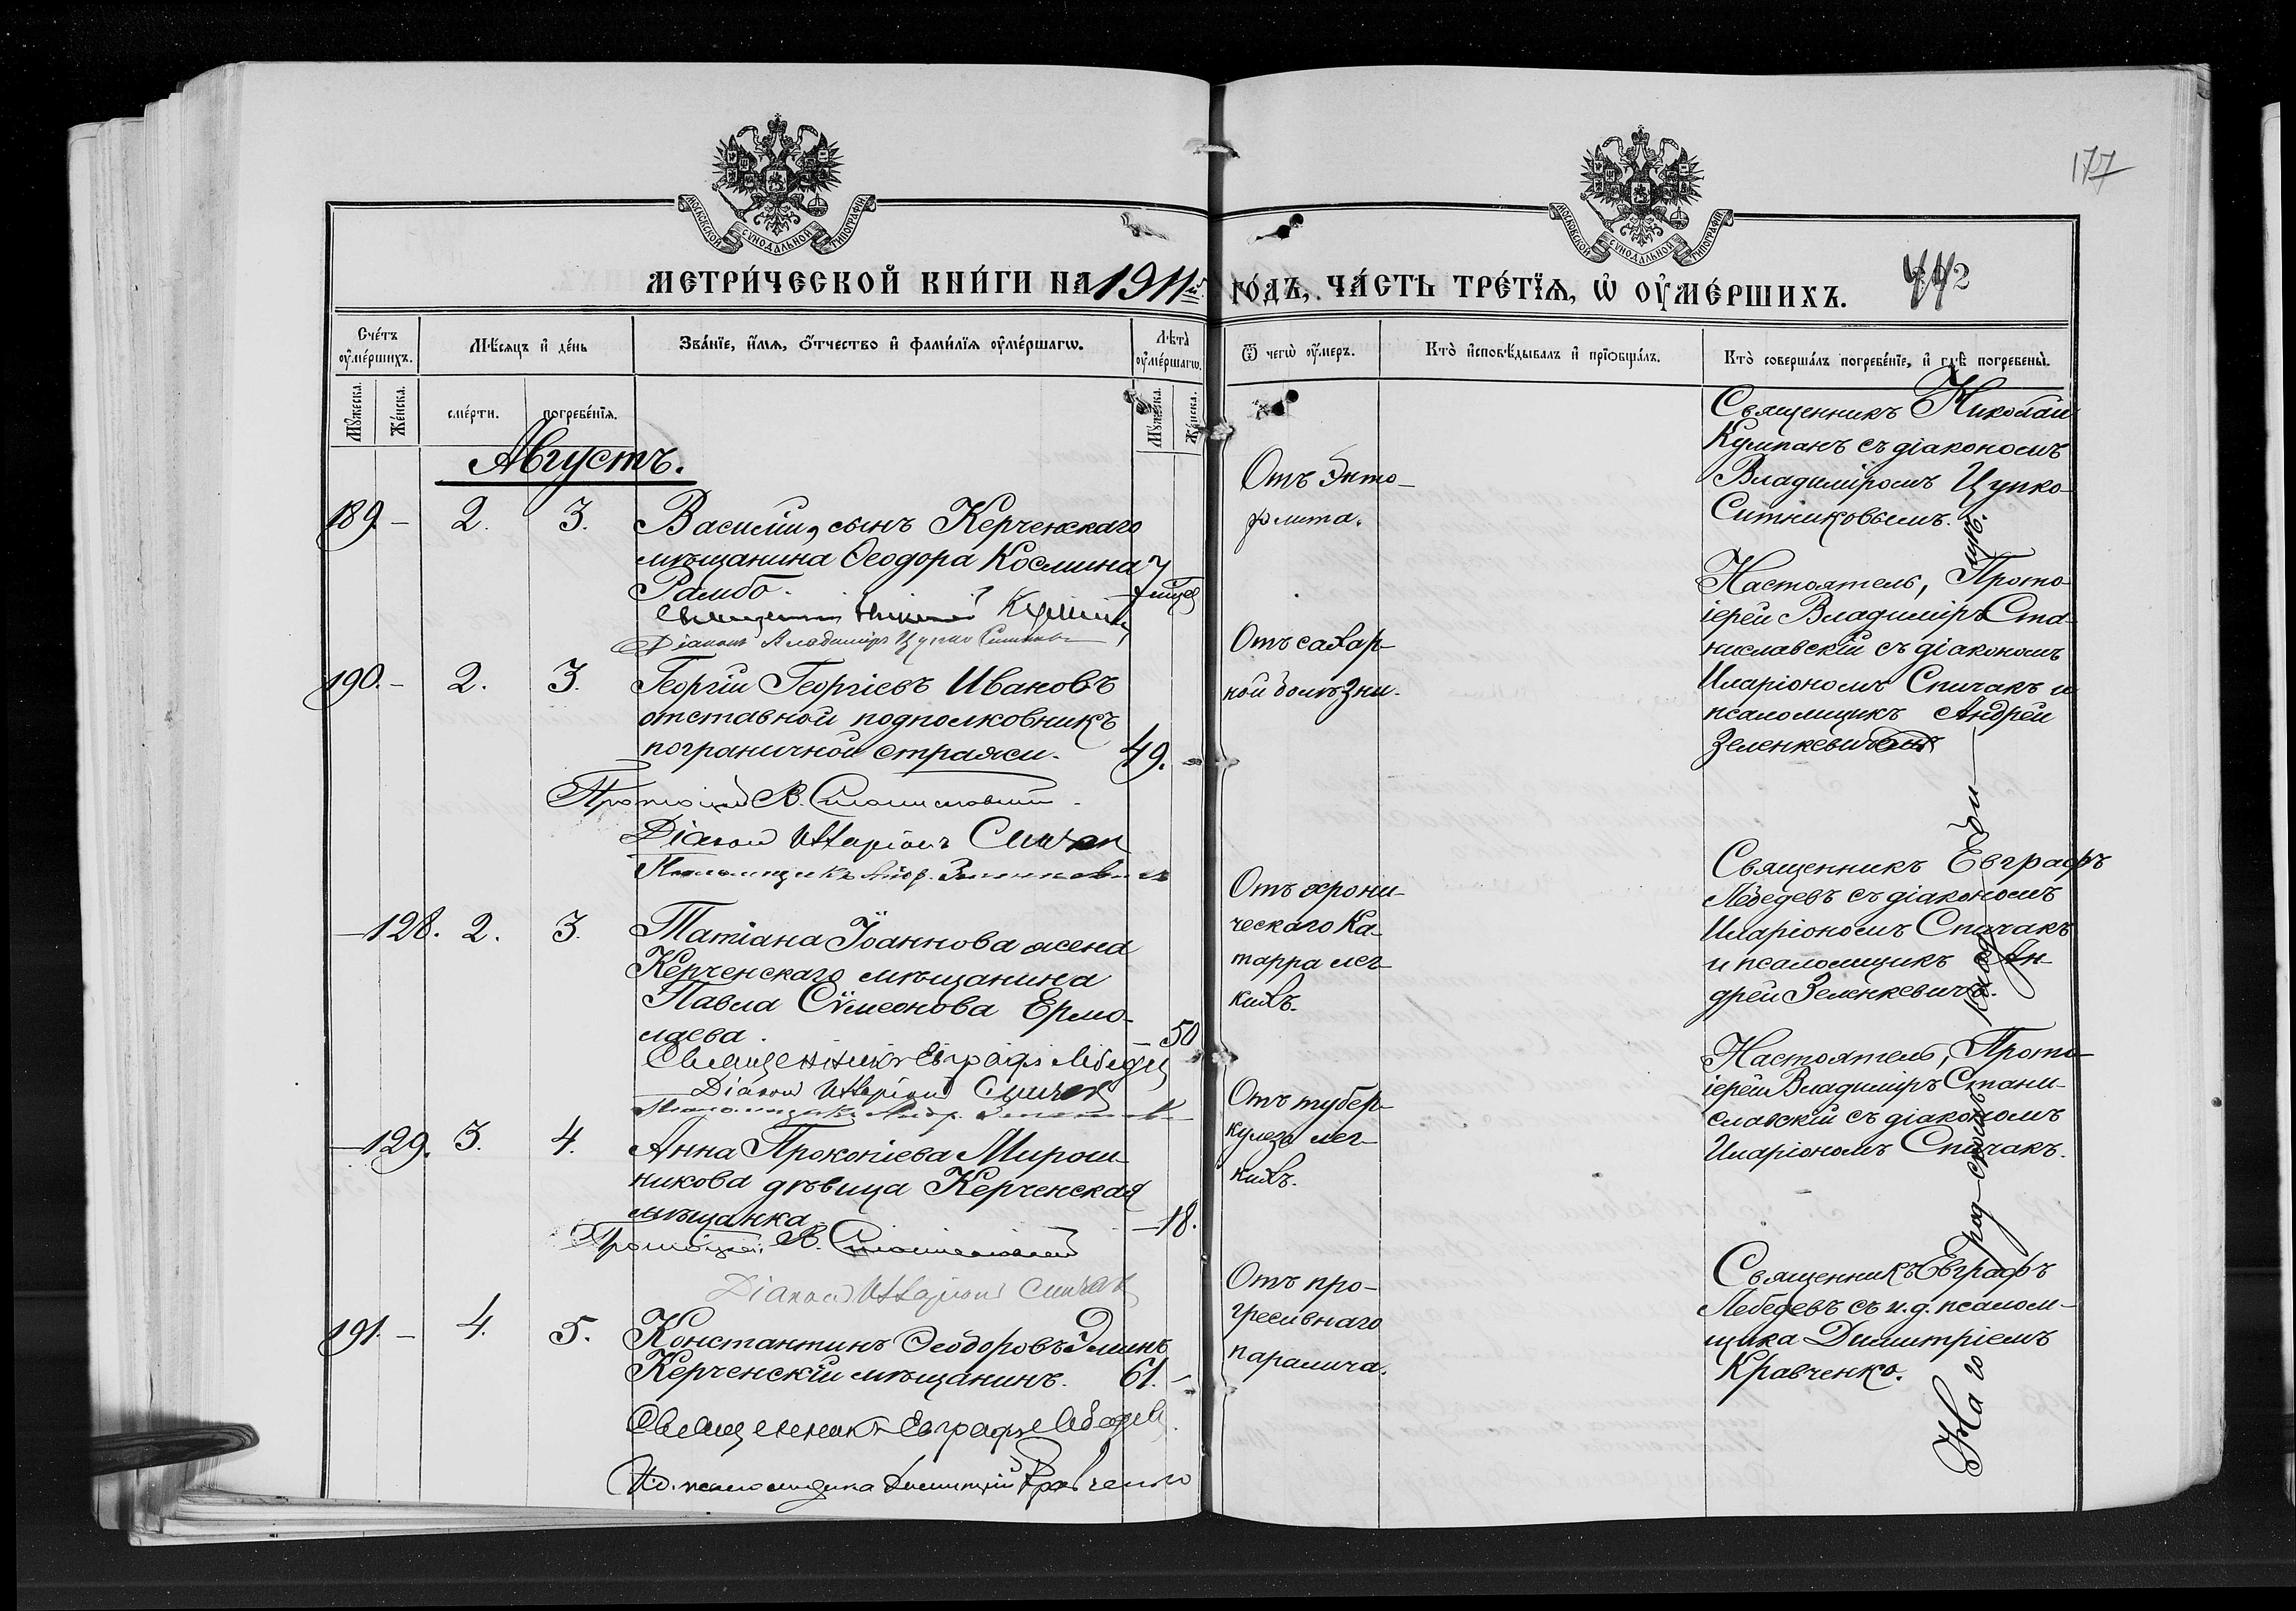 177
МОСКОВСКОЙ СУНОДАЛЬНОЙ ТИПОГРАФІИ
МОСКОВСКОЙ СУНОДАЛЬНОЙ ТИПОГРАФІИ
МЕТРИ́ЧЕСКОЙ КНИ́ГИ НА 1911й ГО́ДЪ, ЧА́СТЬ ТРЕ́ТЇѦ, Ѡ ОУ҆МЕ́РШИХЪ.
Сче́тъ оу҆ме́ршихъ.
Мѣ́сяцъ и҆ де́нь
Зва́нїе, и҆́мѧ, ѻ҆́тчество и҆ фами́лїѧ оу҆ме́ршагѡ.
Лѣ́та оу҆ме́ршагѡ.
Ѿ чегѡ̀ оу҆́меръ.
Кто̀ и҆сповѣ́дывалъ и҆ прїѡбща́лъ.
Кто̀ соверша́лъ погребе́нїе, и҆ гдѣ̀ погребены̀.
Мꙋ́жеска.
Же́нска.
сме́рти.
погребе́нїѧ.
Мꙋ́жеска.
Же́нска.
Августъ.
189. – 2. 3.
Василій, сынъ Керченскаго
мѣщанина Ѳеодора Космина
Рамбо.
7
Діаконъ Владиміръ Цупко Ситниковъ
Отъ Энте-
рита.
Священникъ Николай
Кулпанъ съ діакономъ
Владиміромъ Цупко-
Ситниковымъ.
190. – 2. 3.
Георгій Георгіевъ Ивановъ
отставной подполковникъ
пограничной стражи.
49. –
Протоіерей В. Станиславскій
Діаконъ Иларіонъ Спичак
Псаломщикъ Андр. Зеленкевичъ
Отъ сахар-
ной болѣзни.
Настоятель, Прото-
іерей Владиміръ Ста-
ниславскій съ діакономъ
Иларіономъ Спичакъ и
псаломщикъ Андрей
Зеленкевичъ
– 128. 2. 3.
Татіана Іоаннова жена
Керченскаго мѣщанина
Павла Сѵмеонова Ермо-
лаева.
50
Священникъ Евграфъ Лебедев
Діаконъ Иларіонъ Спичак
Псаломщикъ Андр. Зеленкевичъ
Отъ хрони-
ческаго Ка-
тарра лег-
кихъ.
Священникъ Евграфъ
Лебедевъ съ діакономъ
Иларіономъ Спичакъ
и псаломщикъ Ан-
дрей Зеленкевичъ.
– 129. 3. 4.
Анна Прокопіева Мирош-
никова дѣвица Керченская
мѣщанка.
– 18.
Протоіерей В. Станиславскій
Діаконъ Иларіонъ Спичак
Отъ тубер-
кулеза лег-
кихъ.
Настоятель, Прото-
іерей Владиміръ Стани-
славскій съ діакономъ
Иларіономъ Спичакъ.
191. – 4. 5.
Константинъ Ѳеодоровъ Элинъ
Керченскій мѣщанинъ.
61. –
Священникъ Евграфъ Лебедев
И.д. псаломщика Димитрій Кравченко
Отъ про-
гресивнаго
паралича.
Священникъ Евграфъ
Лебедевъ съ и.д. псалом-
щика Димитріемъ
Кравченко.
На городскомъ кладбищѣ.